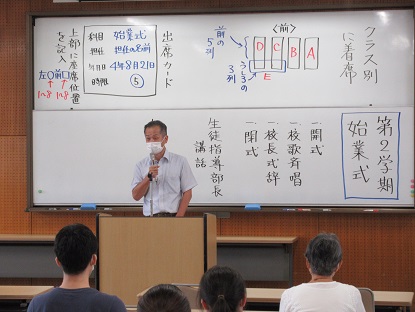 クラス別
に着席
〈前〉
D C B A
E
前の
5列
うしろの
3列
出席カード
科目 始業式
担任 担任の名前
月日 4年8月21日
時限 ⑤
上部に座席位置
を記入
左○前○
1〜8 1〜8
第2学期
始業式
一.開式
一.校歌斉唱
一.校長式辞
一.閉式
生徒指導部長
講話